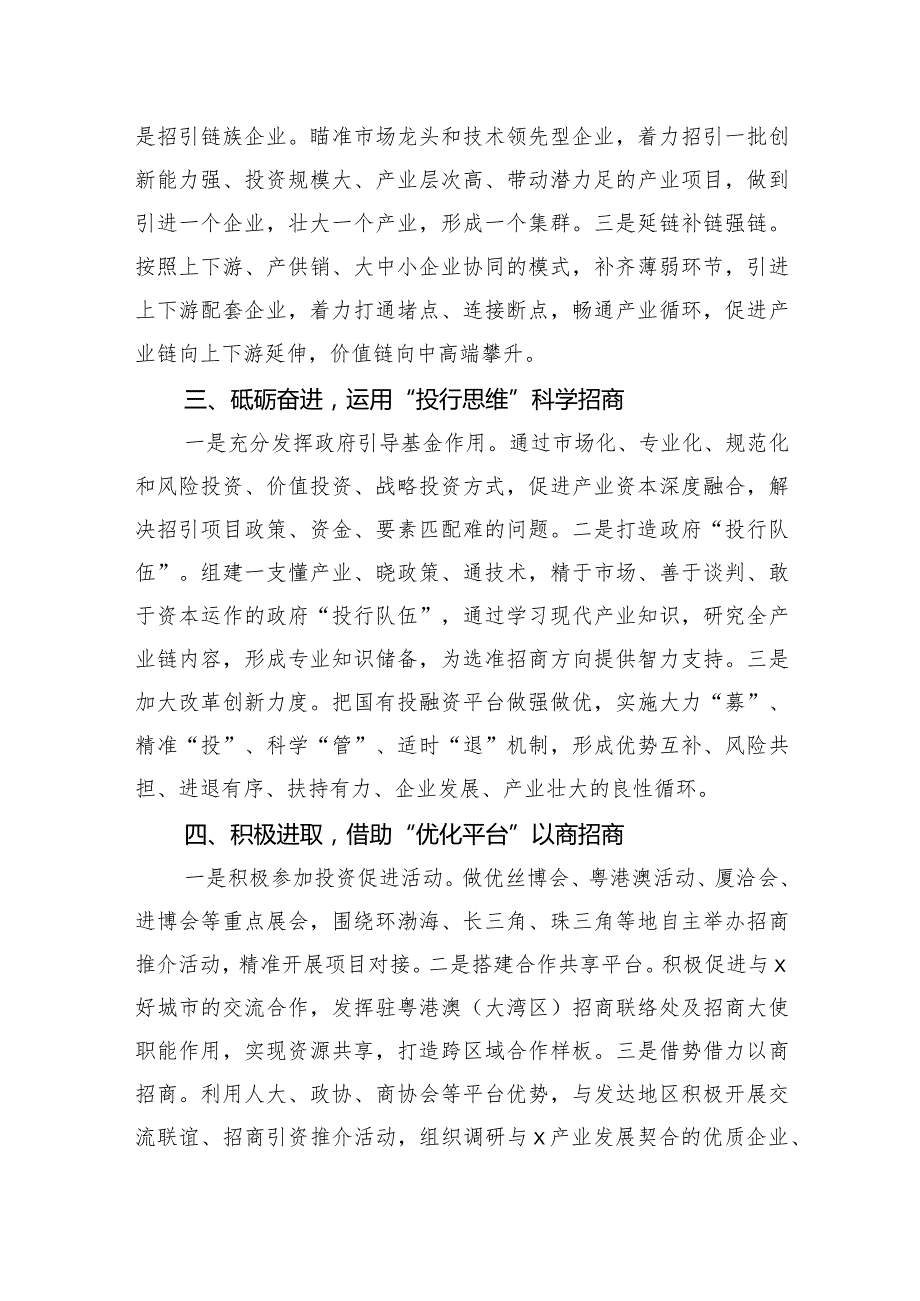 是招引链族企业。瞄准市场龙头和技术领先型企业，着力招引一批创
新能力强、投资规模大、产业层次高、带动潜力足的产业项目，做到
引进一个企业，壮大一个产业，形成一个集群。三是延链补链强链。
按照上下游、产供销、大中小企业协同的模式，补齐薄弱环节，引进
上下游配套企业，着力打通堵点、连接断点，畅通产业循环，促进产
业链向上下游延伸，价值链向中高端攀升。
三、砥砺奋进，运用“投行思维”科学招商
一是充分发挥政府引导基金作用。通过市场化、专业化、规范化
和风险投资、价值投资、战略投资方式，促进产业资本深度融合，解
决招引项目政策、资金、要素匹配难的问题。二是打造政府“投行队
伍”。组建一支懂产业、晓政策、通技术，精于市场、善于谈判、敢
于资本运作的政府“投行队伍”，通过学习现代产业知识，研究全产
业链内容，形成专业知识储备，为选准招商方向提供智力支持。三是
加大改革创新力度。把国有投融资平台做强做优，实施大力“募”、
精准“投”、科学“管”、适时“退”机制，形成优势互补、风险共
担、进退有序、扶持有力、企业发展、产业壮大的良性循环。
四、积极进取，借助“优化平台”以商招商
一是积极参加投资促进活动。做优丝博会、粤港澳活动、厦洽会、
进博会等重点展会，围绕环渤海、长三角、珠三角等地自主举办招商
推介活动，精准开展项目对接。二是搭建合作共享平台。积极促进与x
好城市的交流合作，发挥驻粤港澳（大湾区）招商联络处及招商大使
职能作用，实现资源共享，打造跨区域合作样板。三是借势借力以商
招商。利用人大、政协、商协会等平台优势，与发达地区积极开展交
流联谊、招商引资推介活动，组织调研与x产业发展契合的优质企业、